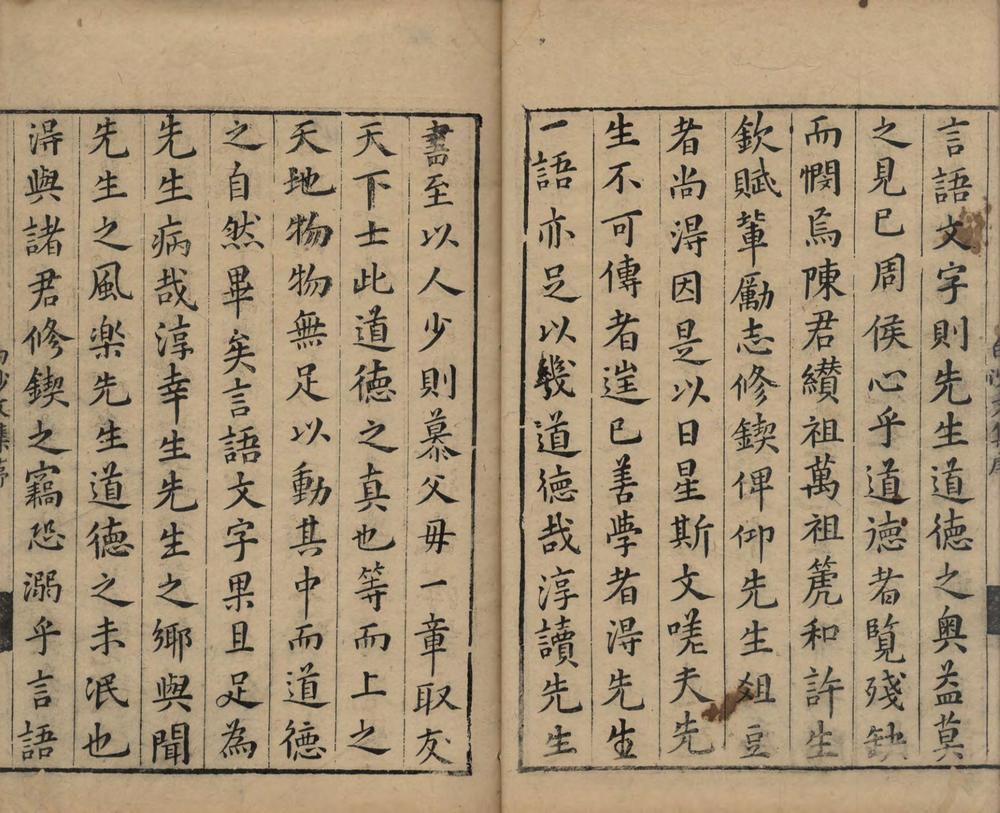 言語文字則先生道徳之奥益莫
之見已周侯心乎道徳者覽殘缺
而憫焉陳君纘祖萬祖箎和許生
欽賦輩勵志修鍥俾仰先生俎豆
者尚淂因是以日星斯文嗟夫先
生不可傳者逞已善學者淂先生
一語亦足以幾道徳哉淳讀先生
書至以人少則慕父毋一章取友
天下士此道徳之真也等而上之
天地物物無足以動其中而道徳
之自然畢矣言語文字果且足為
先生病哉淳幸生先生之鄉與聞
先生之風樂先生道徳之未泯也
淂與諸君修鍥之竊恐溺乎言語
白沙文集序